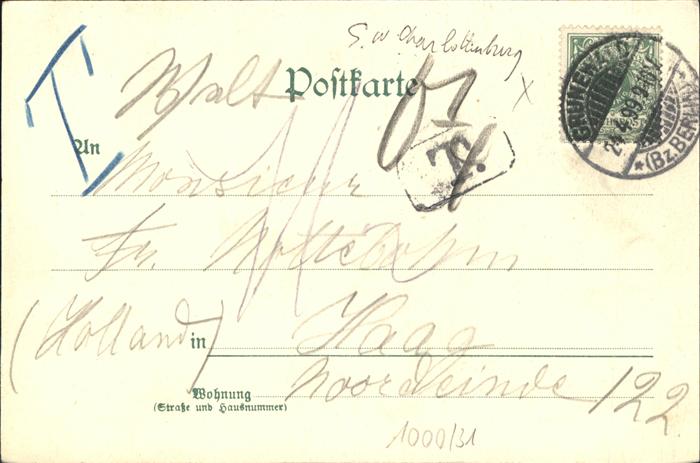 S. w Charlottenburg
Postkarte
T
T.
GRUNEWALD
(Bz. BERLIN)
An
Monsieur
Fr. Nottebohm
(Holland) in Haag
Wohnung
(Straße und Hausnummer)
Noordeinde 122
1000/31